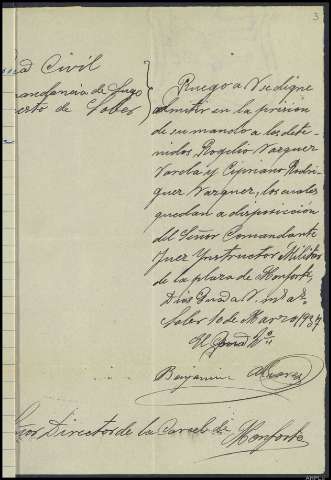 3
Civil
mandancia de Lugo
erto de Sober
Ruego a V se digne
admitir en la prision
de su mando a los dete-
nidos, Rogelio Vazquez
Varela y Cipriano Rodri-
guez Vazquez, los cuales
quedan a disposición
del Señor Comandante
Juez Ynstructor Militar
de la plaza de Monforte,
Dios Guarde a V. m. a.
Sober 10 de Marzo 1937
El
Benjamin Alvarez
Director de la Carcel de Monforte